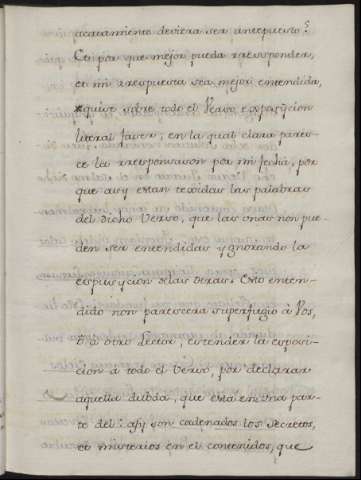 acatamiento deviera ser antepuesto?
Et por que mejor pueda rresponder,
et mi rrespuesta sea mejor entendida,
quiero sobre todo el Verso exposicion
literal facer; en la qual clara pares-
ce la rresponsion por mi fecha, por
que assy estan texidas las palabras
del dicho Verso, que las unas non pue-
den ser entendidas ygnorando la
esposycion de las otras. Esto enten-
dido non parescera superfugio à Vos,
ò à otro Lector, estender la exposi-
cion à todo el Verso, por declarar
aquella dubda, que està en una par-
te del: assy son cadenados los secretos,
et misterios en el contenidos, que